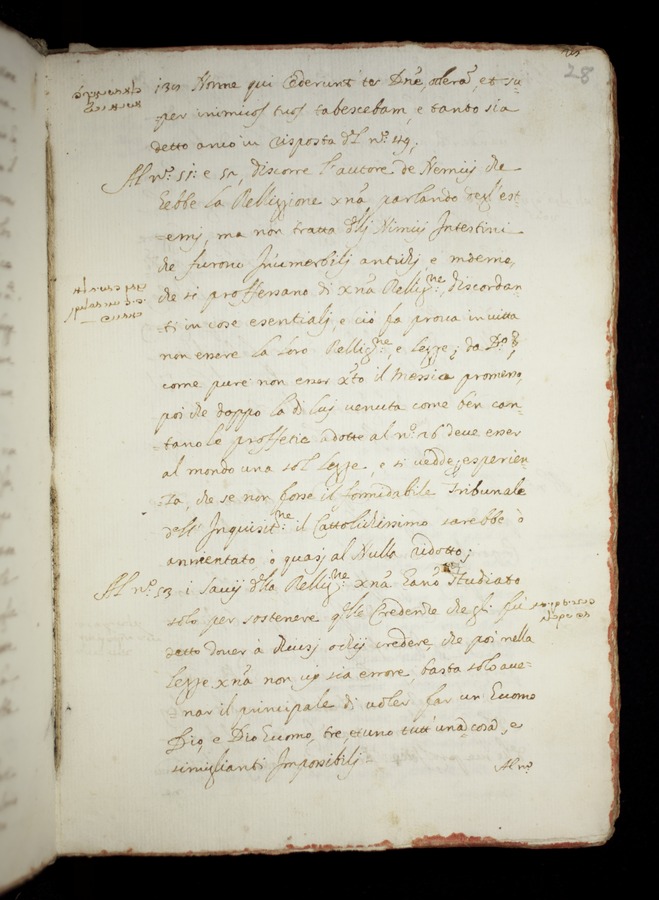 28
139 Nonne qui oderunt te Dne, oderã, et su-
-per inimicos tuos tabescebam, e tanto sia
detto anco in risposta del nº: 49;
Al nº: 51: e 52, discorre l'autore de Nemicij che
hebbe la Relligione xña parlando degl'est-
-erni, ma non tratta delli Nimicij Intestini
che furono Innumerbilij antichij e moderni,
che si proffessano di xña Relligne, discordan-
-ti in cose esentialij, e ciò fa prova invitta
non essere la loro Relligne, e Legge; da D.
come pure non esser xto il Messia promesso,
poi che doppo la di luij venuta come ben can-
-tano le proffetie adotte al nº: 26 deve esser
al mondo una sol Legge, e si vedde esperien-
-za, che se non fosse il formidabile Tribunale
dell' Inquisitne: il Cattolichissimo sarebbe ò
annientato, ò quasj al Nulla ridotto;
Al nº: 53 i Savij della Relligne xña hanõ studiato
solo per sostenere qlle Credenze che gli fù
detto dover à chiusj ochij credere, che poi nella
Legge xña non vij sia errore, basta solo ave-
nar il principale di voler far un Huomo
Dio, e Dio Huomo, tre, et uno tutt'una cosa, e
simiglianti Impossibilij
Al nº